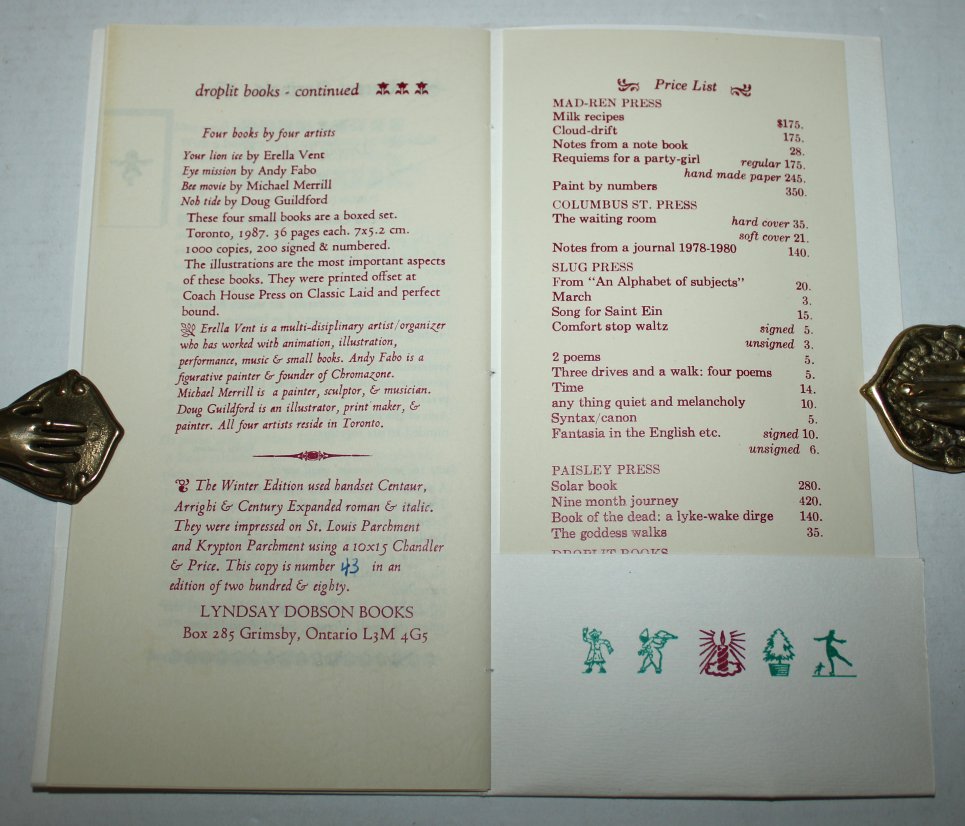 droplit books - continued
Four books by four artists
Your lion ice by Erella Vent
Eye mission by Andy Fabo
Bee movie by Michael Merrill
Noh tide by Doug Guildford
These four small books are a boxed set.
Toronto, 1987. 36 pages each. 7x5.2 cm.
1000 copies, 200 signed & numbered.
The illustrations are the most important aspects
of these books. They were printed offset at
Coach House Press on Classic Laid and perfect
bound.
Erella Vent is a multi-disiplinary artist/organizer
who has worked with animation, illustration,
performance, music & small books. Andy Fabo is a
figurative painter & founder of Chromazone.
Michael Merrill is a painter, sculptor, & musician.
Doug Guildford is an illustrator, print maker, &
painter. All four artists reside in Toronto.
The Winter Edition used handset Centaur,
Arrighi & Century Expanded roman & italic.
They were impressed on St. Louis Parchment
and Krypton Parchment using a 10x15 Chandler
& Price. This copy is number 43 in an
edition of two hundred & eighty.
LYNDSAY DOBSON BOOKS
Box 285 Grimsby, Ontario L3M 4G5
Price List
MAD-REN PRESS
Milk recipes $175.
Cloud-drift 175.
Notes from a note book 28.
Requiems for a party-girl regular 175.
hand made paper 245.
Paint by numbers 350.
COLUMBUS ST. PRESS
The waiting room hard cover 35.
soft cover 21.
Notes from a journal 1978-1980 140.
SLUG PRESS
From "An Alphabet of subjects" 20.
March 3.
Song for Saint Ein 15.
Comfort stop waltz signed 5.
unsigned 3.
2 poems 5.
Three drives and a walk: four poems 5.
Time 14.
any thing quiet and melancholy 10.
Syntax/canon 5.
Fantasia in the English etc. signed 10.
unsigned 6.
PAISLEY PRESS
Solar book 280.
Nine month journey 420.
Book of the dead: a lyke-wake dirge 140.
The goddess walks 35.
DROPLIT BOOKS